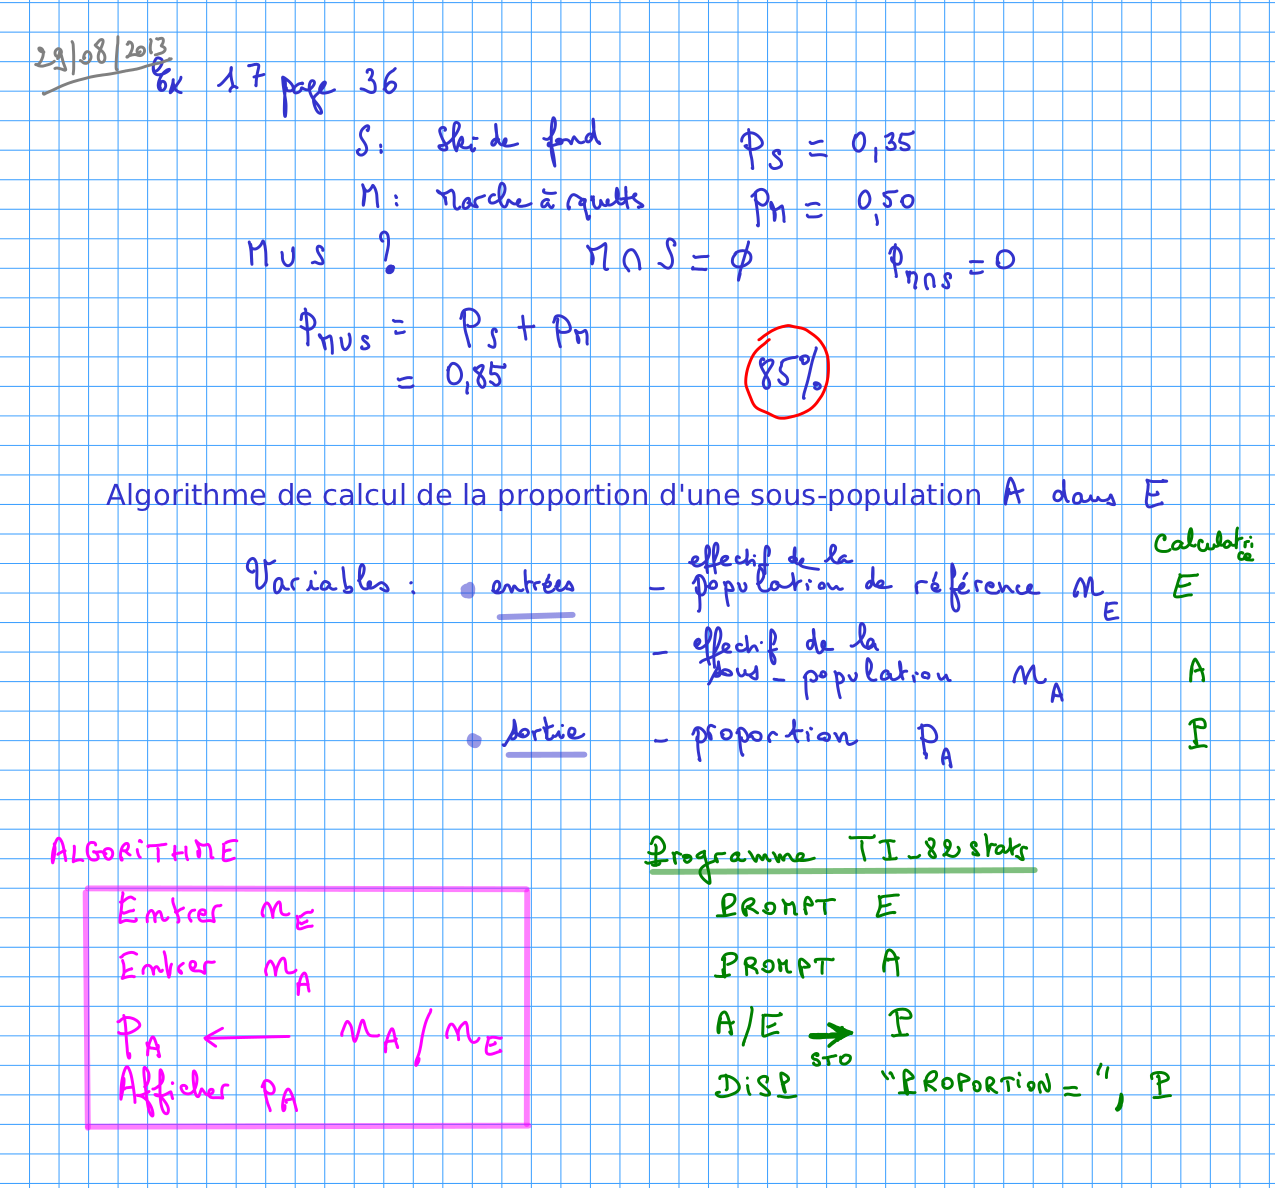 29/08/2013
Ex 17 page 36
S: Ski de fond p_S = 0,35
M: Marche à rquetts p_M = 0,50
M ∪ S ? M ∩ S = ∅ p_{M∩S} = 0
p_{M∪S} = p_S + p_M
= 0,85 85%
Algorithme de calcul de la proportion d'une sous-population A dans E
Calculatrice
Variables : • entrées - effectif de la population de référence n_E E
- effectif de la sous-population n_A A
• sortie - proportion p_A P
ALGORiTHME
Entrer n_E
Entrer n_A
p_A ← n_A / n_E
Afficher p_A
Programme TI-82 stats
PROMPT E
PROMPT A
A/E → P
STO
DiSP "PROPORTiON=", P